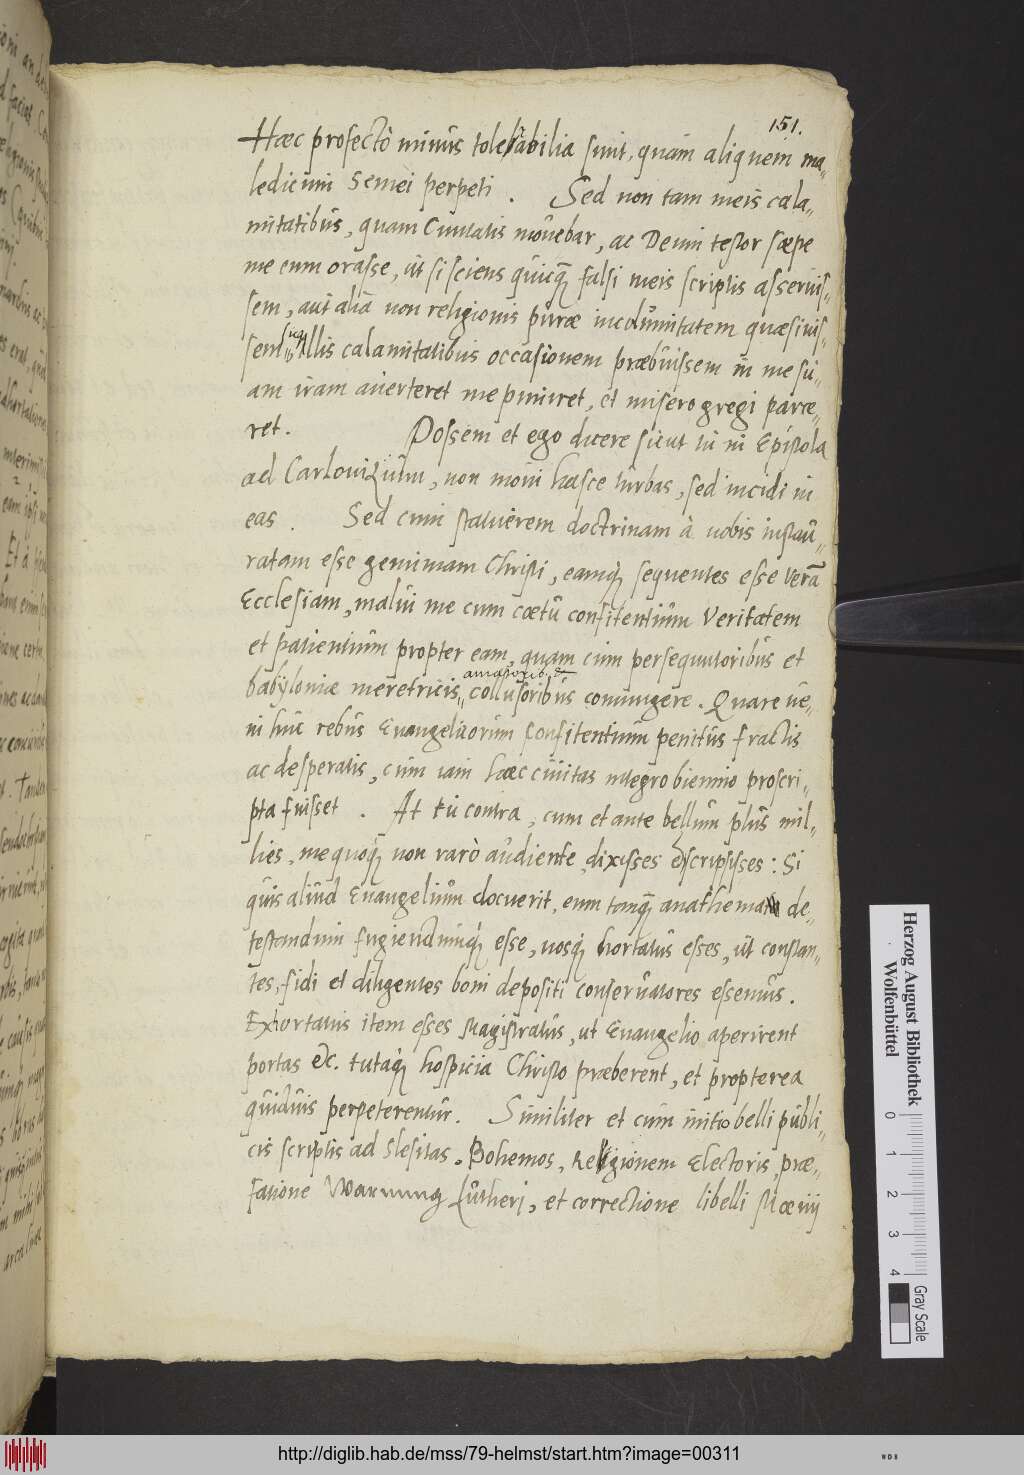 151.
Haec profectò minus tolerabilia sunt, quam aliquem ma„
ledicum Semei perpeti. Sed non tam meis cala„
mitatibus, quam Civitatis movebar, ac Deum testor saepe
me eum orasse, ut si sciens quicq falsi meis scriptis asseruis„
sem, aut aliā non religionis purae incolumitatem quaesivis„
sem, illis calamitatibus occasionem praebuissem in me su„
am iram averteret me puniret, et misero gregi parce„
ret. Possem et ego dicere sicut tu in Epistola
ad Carlovizium, non movi hasce turbas, sed incidi in
eas. Sed cum statuerem doctrinam à vobis instau„
ratam esse genuinam Christi, eamq sequentes esse verā
Ecclesiam, malui me cum coetu confitentium Veritatem
et patientium propter eam, quam cum persequutoribus et
amatorib. &
babyloniae meretricis, collusoribus coniungere. Quare ve„
ni huc rebus Evangelicorum confitentium penitus fractis
ac desperatis, cum iam haec civitas integro biennio proscri„
pta fuisset. At tu contra, cum et ante bellum plus mil„
lies, me quoq non rarò audiente, dixisses & scripsisses: Si
quis aliud Evangelium docuerit, eum tanq anathema de„
testandum fugiendumq esse, nosq hortatus esses, ut constan„
tes, fidi et diligentes boni depositi conservatores essemus.
Exhortatus item esses Magistratus, ut Evangelio aperirent
portas &c. tutaq hospicia Christo praeberent, et propterea
quidvis perpeterentur. Similiter et cum initio belli publi„
cis scriptis ad Slesitas, Bohemos, Religionem Electoris, prae„
fatione Warnung Lutheri, et correctione libelli Maenij
Herzog August Bibliothek
Wolfenbüttel
0 1 2 3 4
Gray Scale
http://diglib.hab.de/mss/79-helmst/start.htm?image=00311
WDB